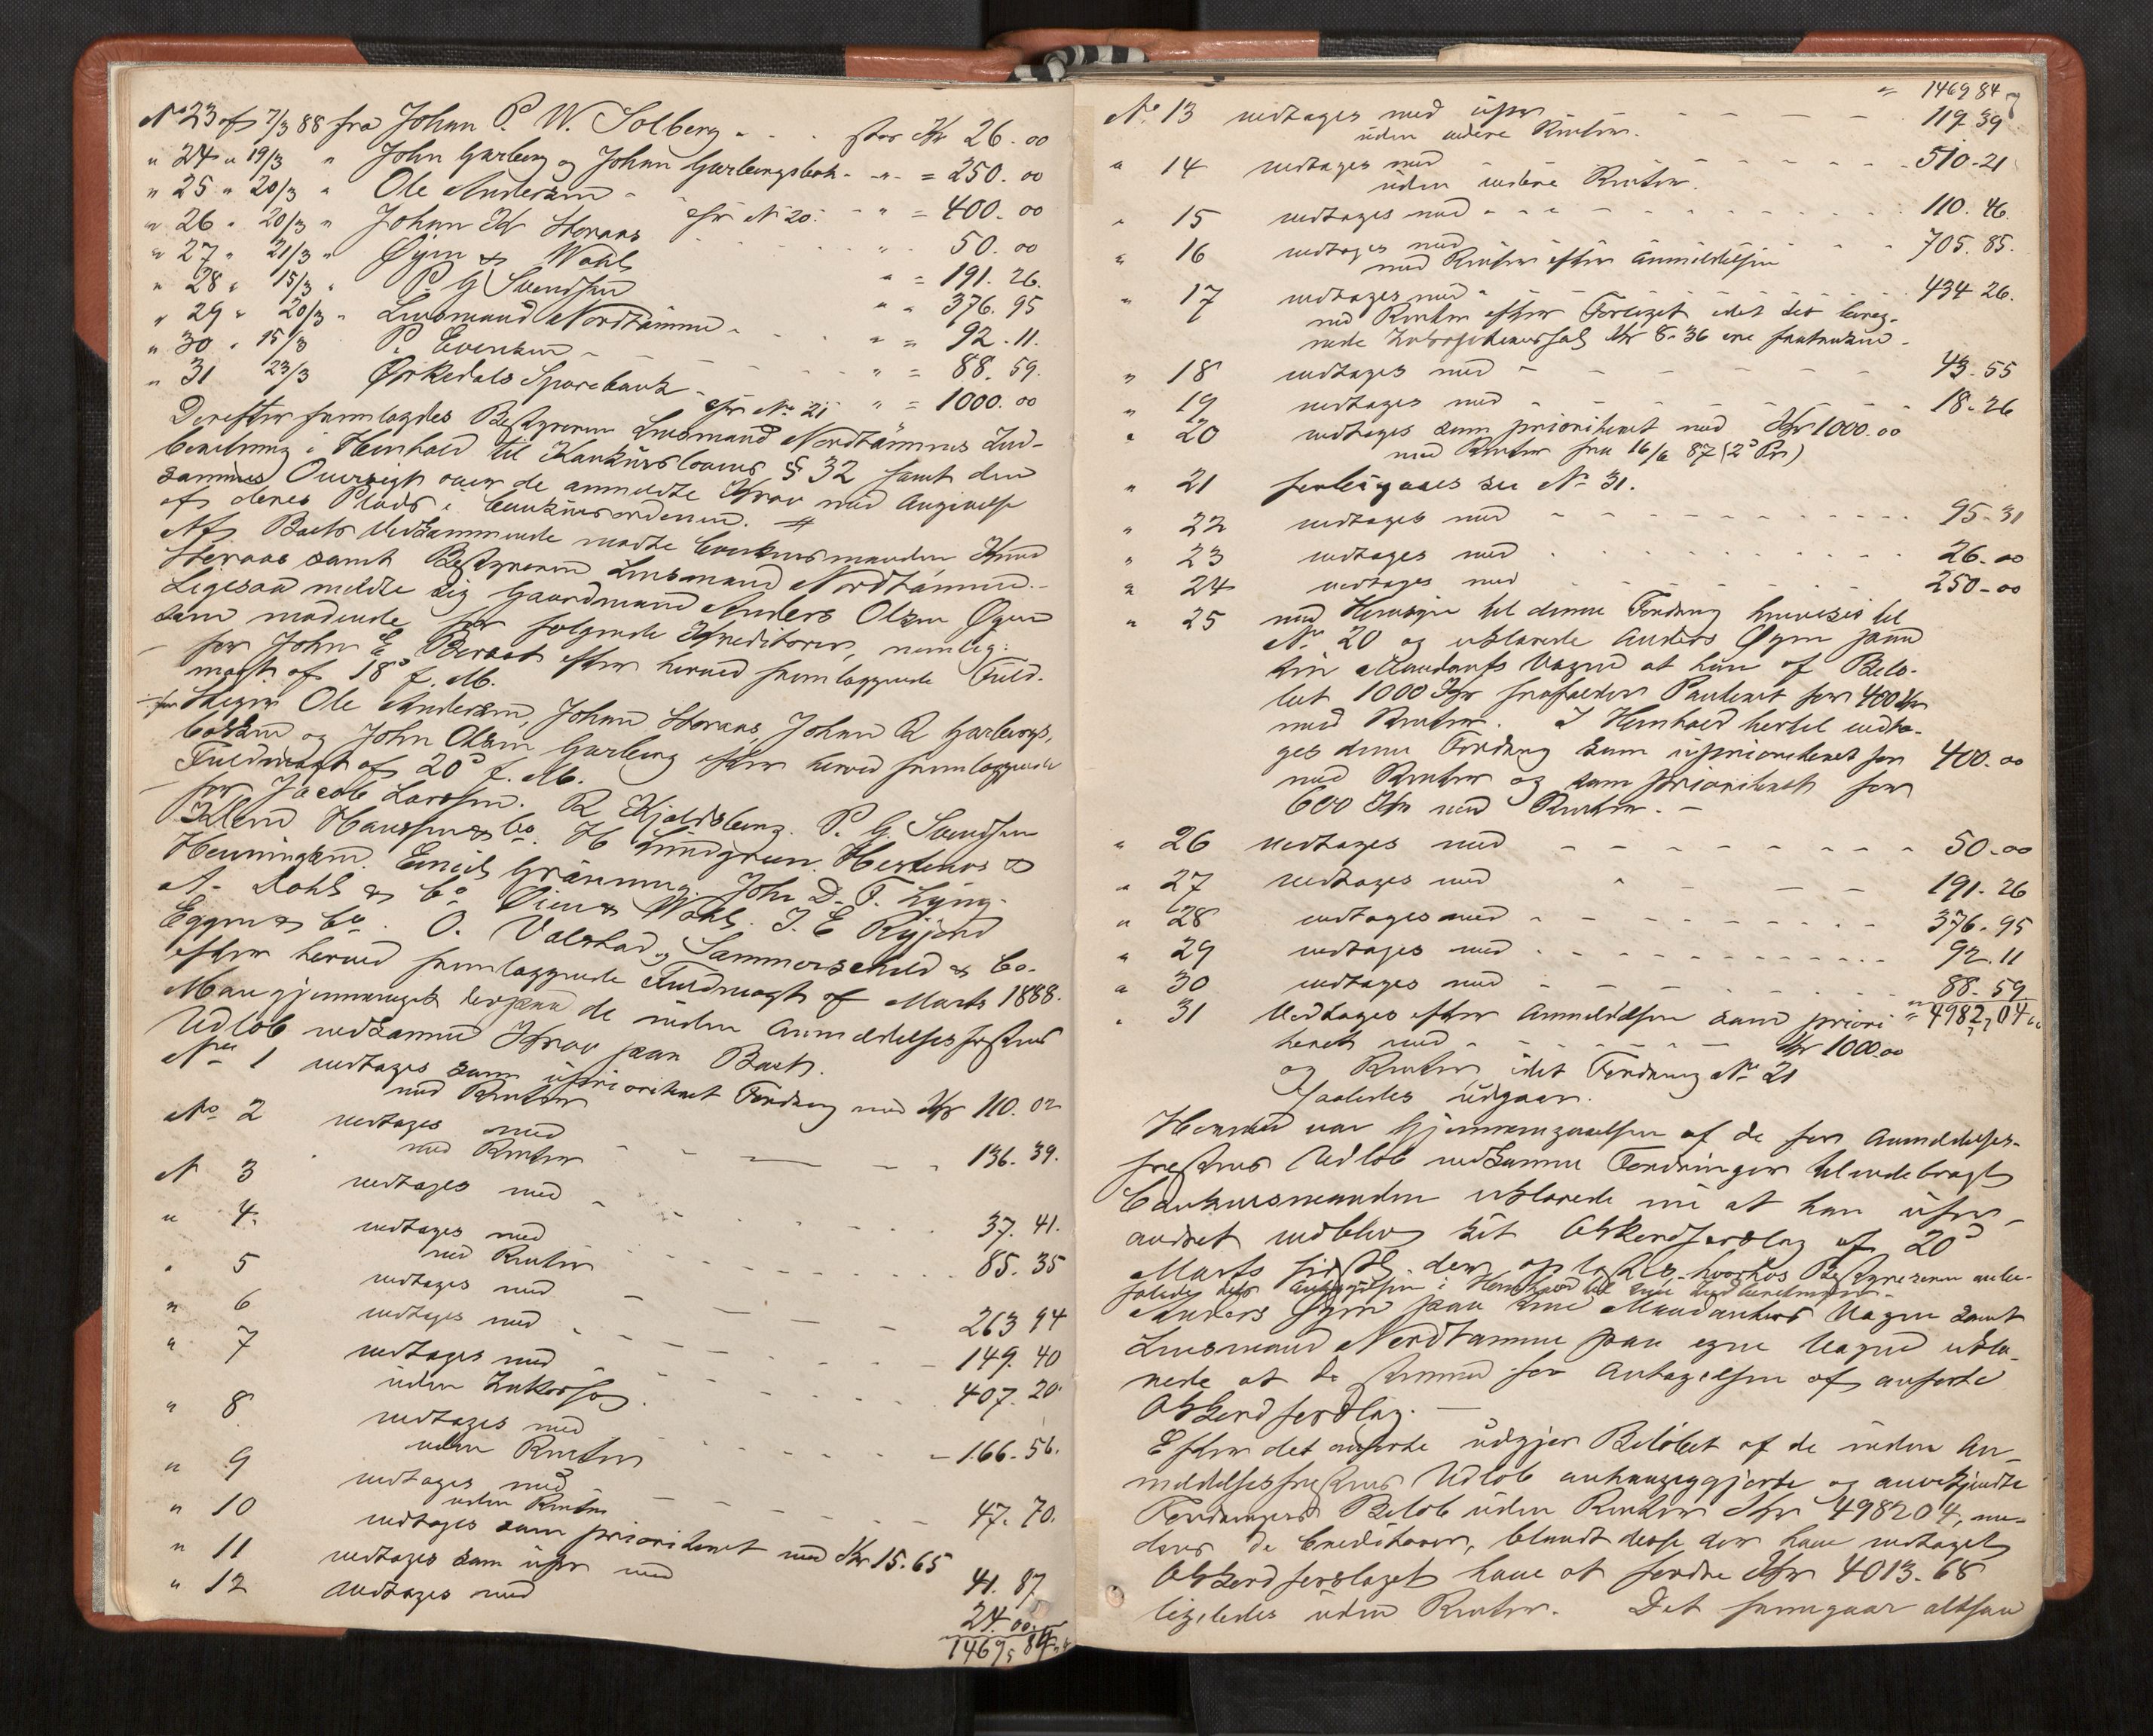 No 23 af 7/3 88 fra Johan P. W. Solberg - - - stor Kr 26. 00
" 24 " 19/3 " John Garberg og Johan Garbergsbak - " = 250. 00
" 25 " 20/3 " Ole Andersen - cfr No 20. - " = 400. 00
" 26 " 20/3 " Johan K Storaas " 50. 00
" 27 " 21/3 " Øyen & Wahl " = 191. 26.
" 28 " 15/3 " P G Svendsen " = 376. 95
" 29 " 20/3 " Lensmand Nordtømme - " = 92. 11.
" 30 " 15/3 P. Evensen - " = 88. 59.
" 31 23/3 Ørkedals Sparebank - cfr No 21 " = 1000. 00
Derefter fremlagdes Bestyreren Lensmand Nordtømmes Ind-
beretning i Henhold til Konkurslovens § 32 samt den
sammes Oversigt over de anmeldte Krav med Angivelse
af deres Plads i Concursordenen. #
Af Boets Vedkommende mødte Concursmanden Knud
Storaas samt Bestyreren Lensmand Nordtømme. -
Ligesaa meldte sig Gaardmand Anders Olsen Øyen
som mødende for følgende Kreditorer, nemlig:
for John E Beraat efter herved fremlæggende Fuld-
magt af 18de f. M.
for Ole Andersen, Johan Storaas, Johan R Garbergs-
bakken og John Olsen Garberg efter herved fremlæggende
Fuldmagt af 20de f. M.
for Jacob Larssen. R Kjeldsberg. P. G. Svendsen
Klem Hanssen & Co. H Lundgreen. Herlenes &
Henningsen. Emil Grønning. John D. F. Lyng.
A. Dahl & Co Øien & Wahl. J. E Ryjord
Eggen & Co. O. Valstad, Sammerschild & Co.
efter herved fremlæggende Fuldmagt af Marts 1888.
Man gjennemgik derpaa de inden Anmeldelsesfristens
Udløb vedkomne Krav paa Boet.
No 1 vedtages som uprioriteret Fordring med Kr 110. 02
med Renter
No 2 vedtages med
med Renter - - - - 136. 39.
N 3 vedtages med - - - - 37. 41.
" 4. vedtages med
med Renter - - - - 85. 35
" 5 vedtages med - - - 263 94
" 6 vedtages med - - - 149. 40
" 7 vedtages med
uden Inkasso - - - 407. 20.
" 8 vedtages med
uden Renter - - - 166. 56.
" 9 vedtages med
uden Renter - - - 47. 70.
" 10 vedtages som prioriteret med Kr 15. 65
" 11 vedtages som upr med 41. 87.
" 12 vedtages med 24. 00.
1469, 84
= 1469 84
No 13 vedtages med upr - - - - 119 39
uden videre Renter.
" 14 vedtages med - - - - 510. 21
uden videre Renter.
" 15 vedtages med - - - - 110. 46.
" 16 vedtages med - - - 705. 85.
med Renter efter Anmeldelsen
" 17 vedtages med - - - 434 26.
med Renter efter Forligt idet det bereg-
nede Inkassationssal Kr 8. 36 ere fratrukne -
" 18 vedtages med - - - - 43. 55
" 19 vedtages med - - - - 18. 26
" 20 vedtages som prioriteret med Kr 1000. 00
med Renter fra 16/6 87 (2d Pr)
" 21 forbigaaes see No 31.
" 22 vedtages med - - - - 95. 31
" 23 vedtages med - - - - 26. 00
" 24 vedtages med - - - - 250. 00
" 25 med Hensyn til denne Fordring henvises til
No 20 og erklærede Anders Øyen paa
sin Mandants Vegne at han af Belø-
bet 1000 Kr frafalder Panteret for 400 Kr
med Renter. I Henhold hertil vedta-
ges denne Fordring som uprioriteret for 400. 00
med Renter og som prioriteret for
600 Kr med Renter. -
" 26 vedtages med - - - - 50. 00
" 27 vedtages med - - - 191. 26
" 28 vedtages med - - - - 376. 95
" 29 vedtages med - - - - 92. 11
" 30 vedtages med - - - - 88. 59
" 31 Vedtages efter Anmeldelsen som priori = 4982, 04
teret med - - - - Kr 1000. 00
og Renter, idet Fordring No 21
saaledes udgaar.
Hermed var Gjennemgaaelsen af de før Anmeldelses-
fristens Udløb vedkomne Fordringer tilendebragt
Concursmanden erklærede nu at han ufor-
andret vedblev sit Akkordforslag af 20de
Marts sidstl. der oplæstes hvorhos Bestyreren anbe-
falede dets Antagelse i Henhold til sin Indberetning.
Anders Øyen paa sine Mandanters Vegne samt
Lensmand Nordtømme paa egne Vegne erklæ-
rede at de stemme for Antagelsen af anførte
Akkordforslag. -
Efter det anførte udgjør Beløbet af de inden An-
meldelsesfristens Udløb anhængiggjorte og anerkjendte
Fordringers Beløb uden Renter Kr 4982 04, me-
dens de Creditorer, blandt disse der have vedtaget
Akkordforslaget have at fordre Kr 4013. 68
ligeledes uden Renter. Det fremgaar altsaa